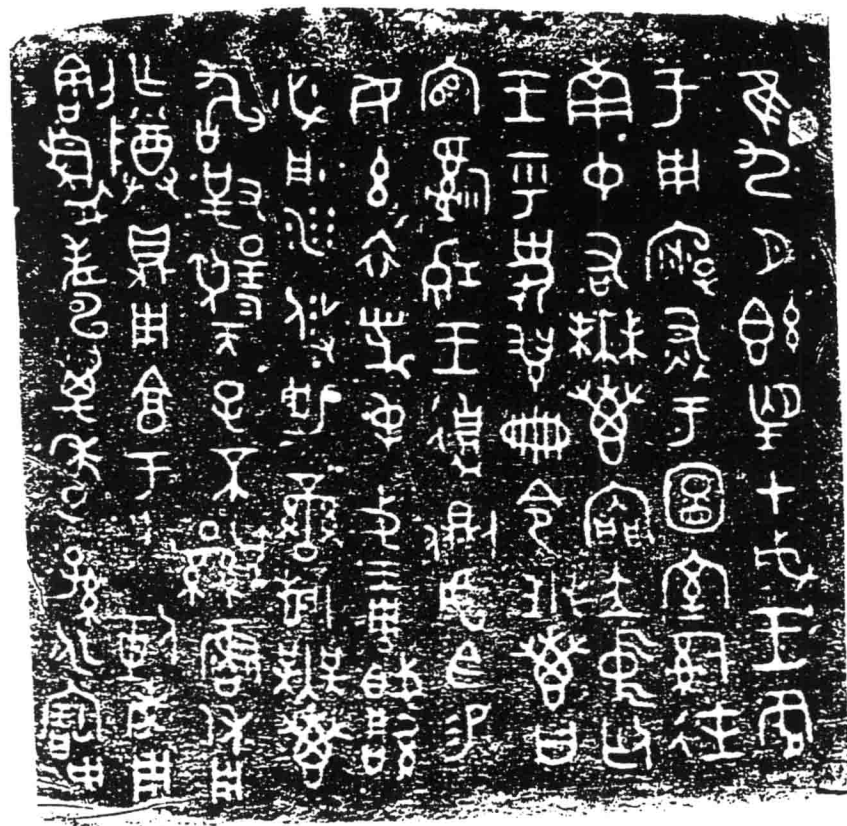 隹九月既望甲戌王各
于周廟于圖室𤔲徒
南中右無叀內門立中廷
王乎史翏冊令無叀曰
官𤔲王側虎臣易
女玄衣黹屯戈琱㦰厚
必彤沙攸勒䜌旂無叀
敢對揚天子不顯魯休用
乍尊鼎用享于朕剌考用
割眉壽萬年子孫永寶用